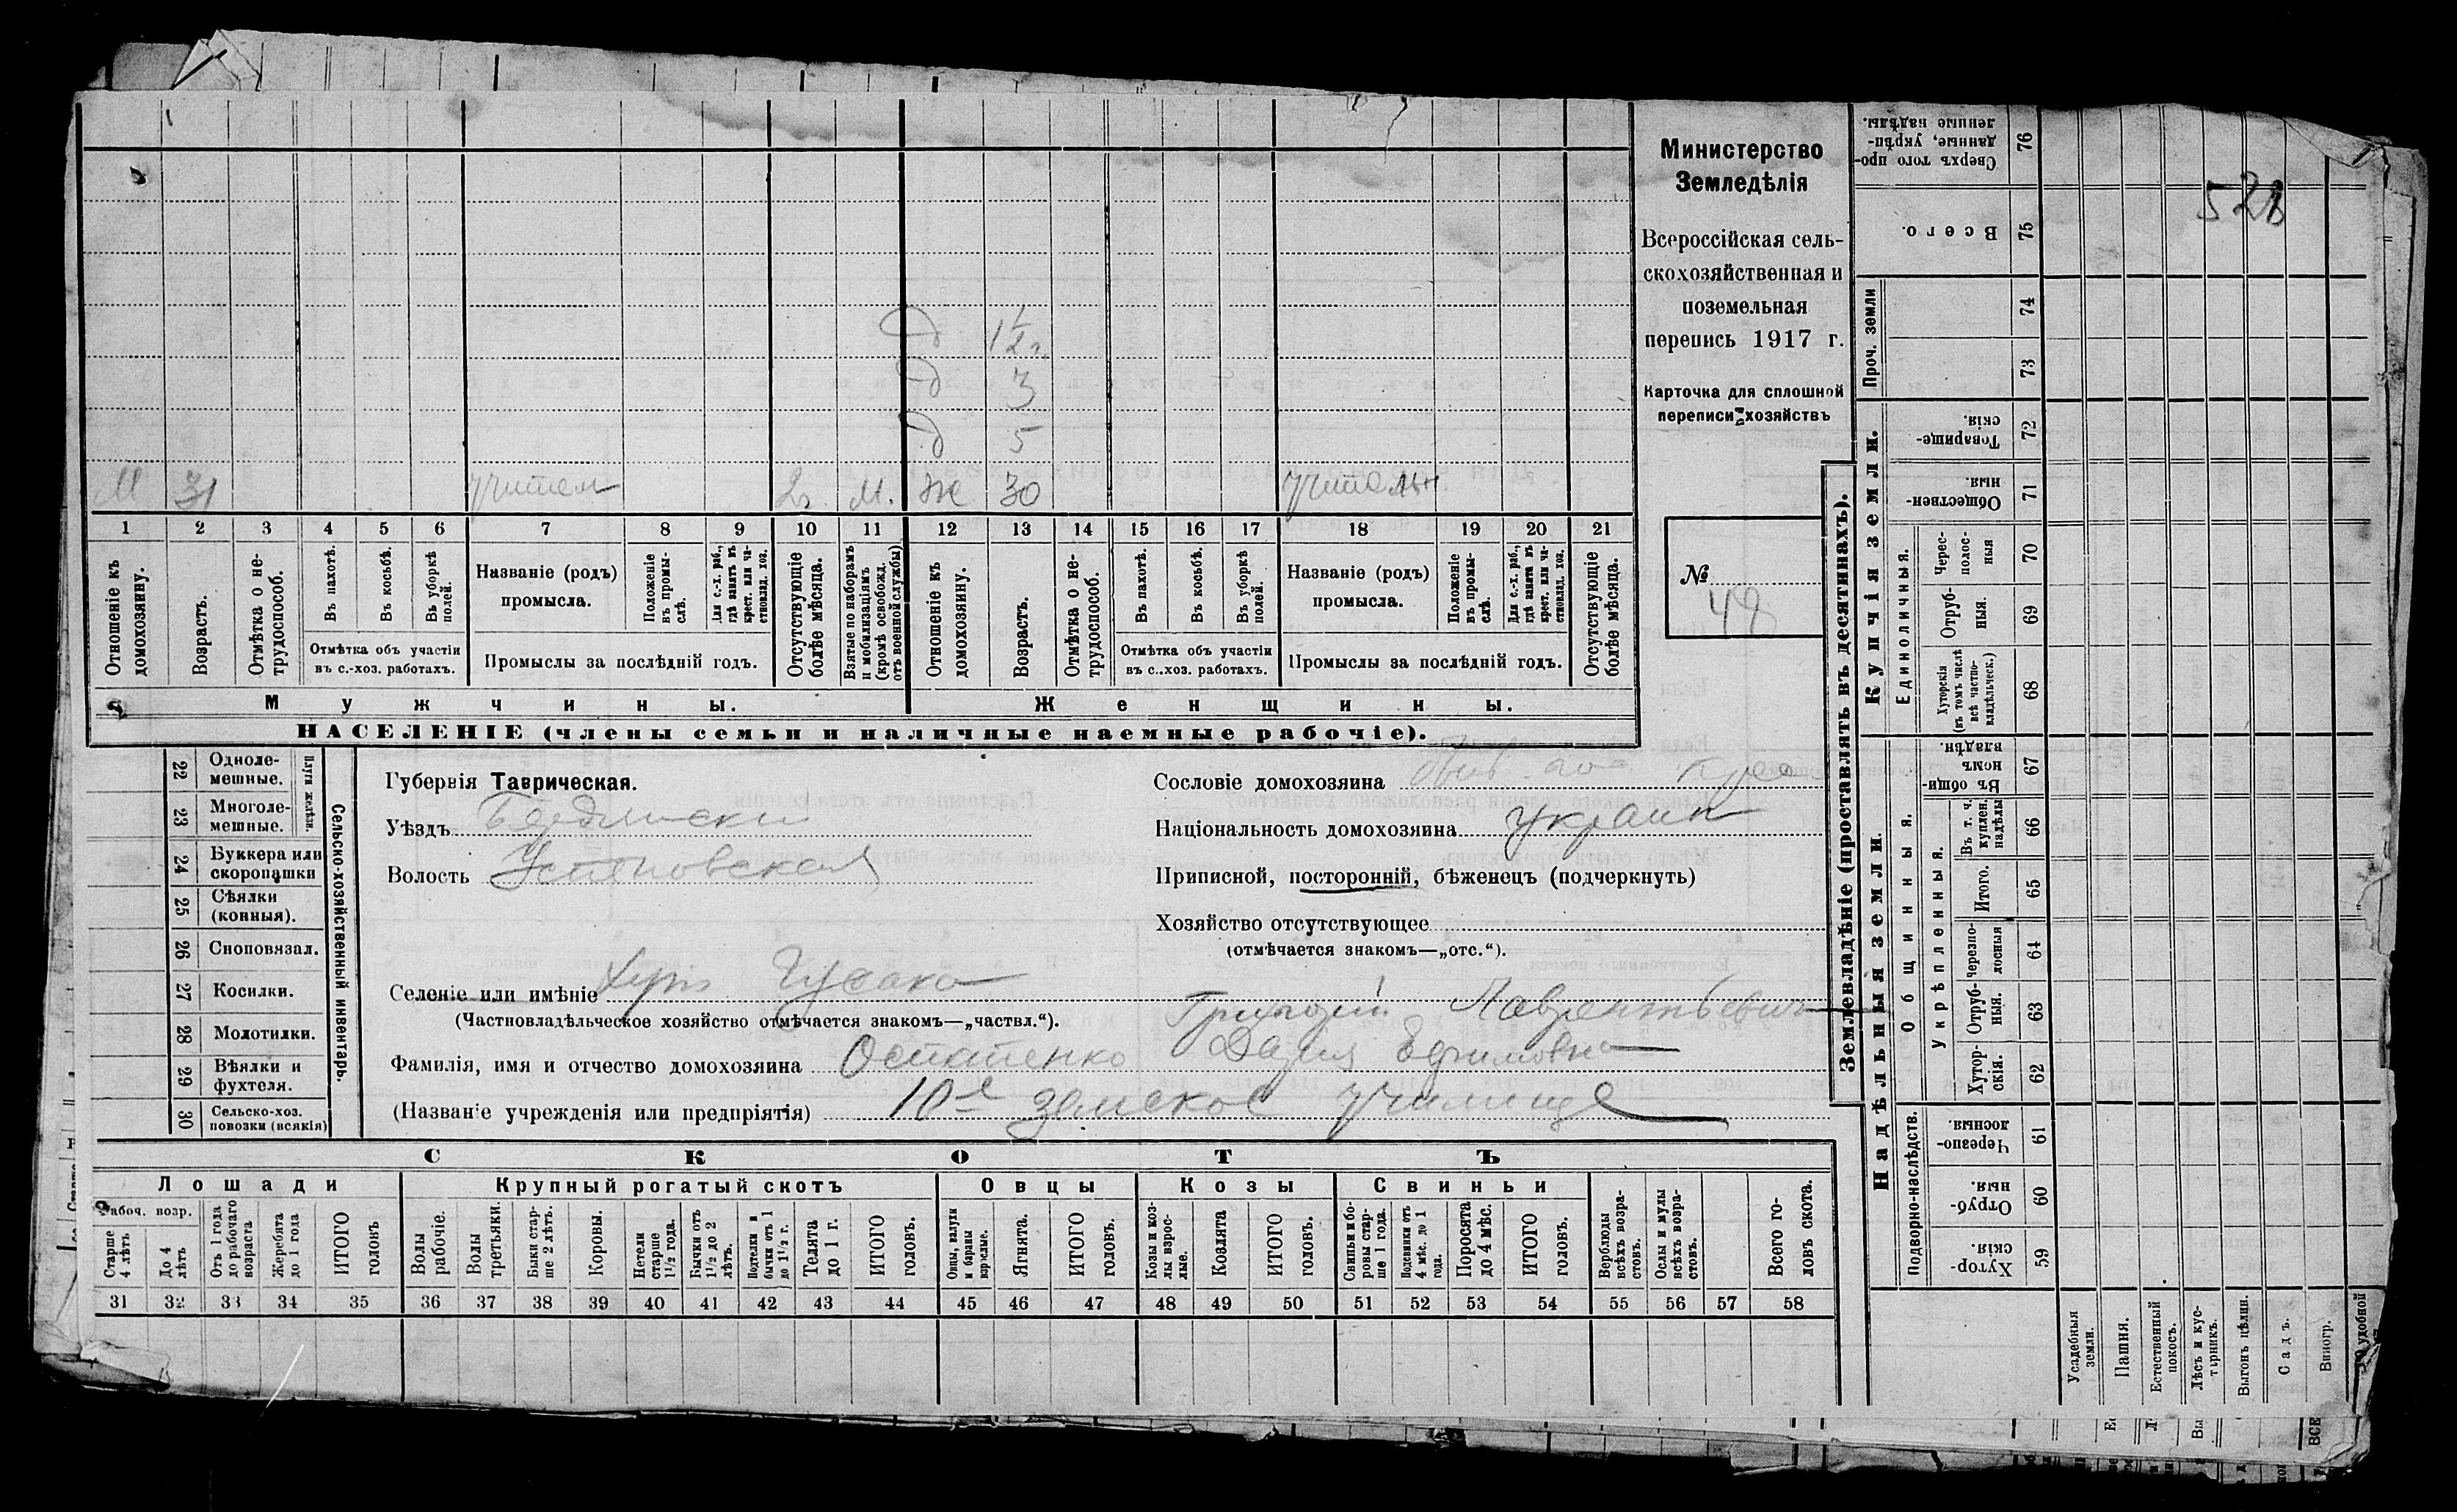 Министерство
Земледѣлія
Всероссійская сель-
скохозяйственная и
поземельная
перепись 1917 г.
Карточка для сплошной
переписи хозяйствъ
№
48
521
1½ г.
3
5
М 31 учител 2 г. М. Ж 30 учительн
1 2 3 4 5 6 7 8 9 10 11 12 13 14 15 16 17 18 19 20 21
Отношеніе къ домохозяину.
Возрастъ.
Отмѣтка о не-трудоспособ.
Въ пахотѣ.
Въ косьбѣ.
Въ уборкѣ полей.
Отмѣтка объ участіи
въ с.-хоз. работахъ.
Названіе (родъ)
промысла.
Положеніе въ промы-слѣ.
Для с.-х. раб., гдѣ занятъ въ крест. или ча-стновлад. хоз.
Промыслы за послѣдній годъ.
Отсутствующіе болѣе мѣсяца.
Взятые по наборамъ и мобилизаціямъ (кромѣ освобожд. отъ военной службы)
Отношеніе къ домохозяину.
Возрастъ.
Отмѣтка о не-трудоспособ.
Въ пахотѣ.
Въ косьбѣ.
Въ уборкѣ полей.
Отмѣтка объ участіи
въ с.-хоз. работахъ.
Названіе (родъ)
промысла.
Положеніе въ промы-слѣ.
Для с.-х. раб., гдѣ занята въ крест. или ча-стновлад. хоз.
Промыслы за послѣдній годъ.
Отсутствующіе болѣе мѣсяца.
Мужчины.
Женщины.
НАСЕЛЕНІЕ (члены семьи и наличные наемные рабочіе).
22 Одноле-мешные.
23 Многоле-мешные.
Плуги желѣзн.
24 Буккера или скоропашки
25 Сѣялки (конныя).
26 Сноповязал.
27 Косилки.
28 Молотилки.
29 Вѣялки и фухтеля.
30 Сельско-хоз. повозки (всякія)
Сельско-хозяйственный инвентарь.
Губернія Таврическая.
Уѣздъ Бердянски
Волость Успеновская
Селеніе или имѣніе Хут Гусака
(Частновладѣльческое хозяйство отмѣчается знакомъ—„частвл.“).
Григорій Лаврентьевич
Фамилія, имя и отчество домохозяина Остатенко Дарія Ефимовна
(Названіе учрежденія или предпріятія) 10-е земское училище
Сословіе домохозяина
Національность домохозяина украин
Приписной, посторонній, бѣженецъ (подчеркнуть)
Хозяйство отсутствующее
(отмѣчается знакомъ—„отс.“).
СКОТЪ
Лошади
Крупный рогатый скотъ
Овцы
Козы
Свиньи
Рабоч. возр.
Старше 4 лѣтъ
До 4 лѣтъ
Отъ 1 года до рабочаго возраста
Жеребята до 1 года
ИТОГО головъ
Волы рабочіе.
Волы третьяки.
Быки стар-ше 2 лѣтъ.
Коровы.
Нетели старше 1½ года.
Бычки отъ 1½ до 2 лѣтъ.
Подтелки и бычки отъ 1 до 1½ г.
Телята до 1 г.
ИТОГО головъ.
Овцы, валухи и бараны взрослые.
Ягнята.
ИТОГО головъ.
Козы и коз-лы взрос-лые.
Козлята
ИТОГО головъ.
Свиньи и бо-ровы стар-ше 1 года.
Подсвинки отъ 4 мѣс. до 1 года.
Поросята до 4 мѣс.
ИТОГО головъ.
Верблюды всѣхъ возра-стовъ.
Ослы и мулы всѣхъ возра-стовъ.
Всего го-ловъ скота.
31 32 33 34 35 36 37 38 39 40 41 42 43 44 45 46 47 48 49 50 51 52 53 54 55 56 57 58
Землевладѣніе (проставлять въ десятинахъ).
Надѣльныя земли.
Купчія земли.
Проч. земли
Подворно-наслѣдств.
Общинныя.
Укрѣпленныя.
Единоличныя.
Сверхъ того про-данные, укрѣп-ленные надѣлы. 76
Всего. 75
74
73
Товарище-скія. 72
Обществен-ныя. 71
Черес-полос-ныя 70
Отруб-ныя. 69
Хуторскія (въ томъ числѣ всѣ частно-владѣльческ.) 68
Въ общин-номъ владѣн. 67
Въ т. ч. куплен. надѣлы 66
Итого. 65
Черезпо-лосныя 64
Отруб-ныя. 63
Хутор-скія. 62
Черезпо-лосныя. 61
Отруб-ныя. 60
Хутор-скія. 59
Усадебныя земли.
Пашня.
Естественный покосъ.
Лѣсъ и кус-тарникъ.
Выгонъ цѣлин.
Садъ.
Виногр.
удобной